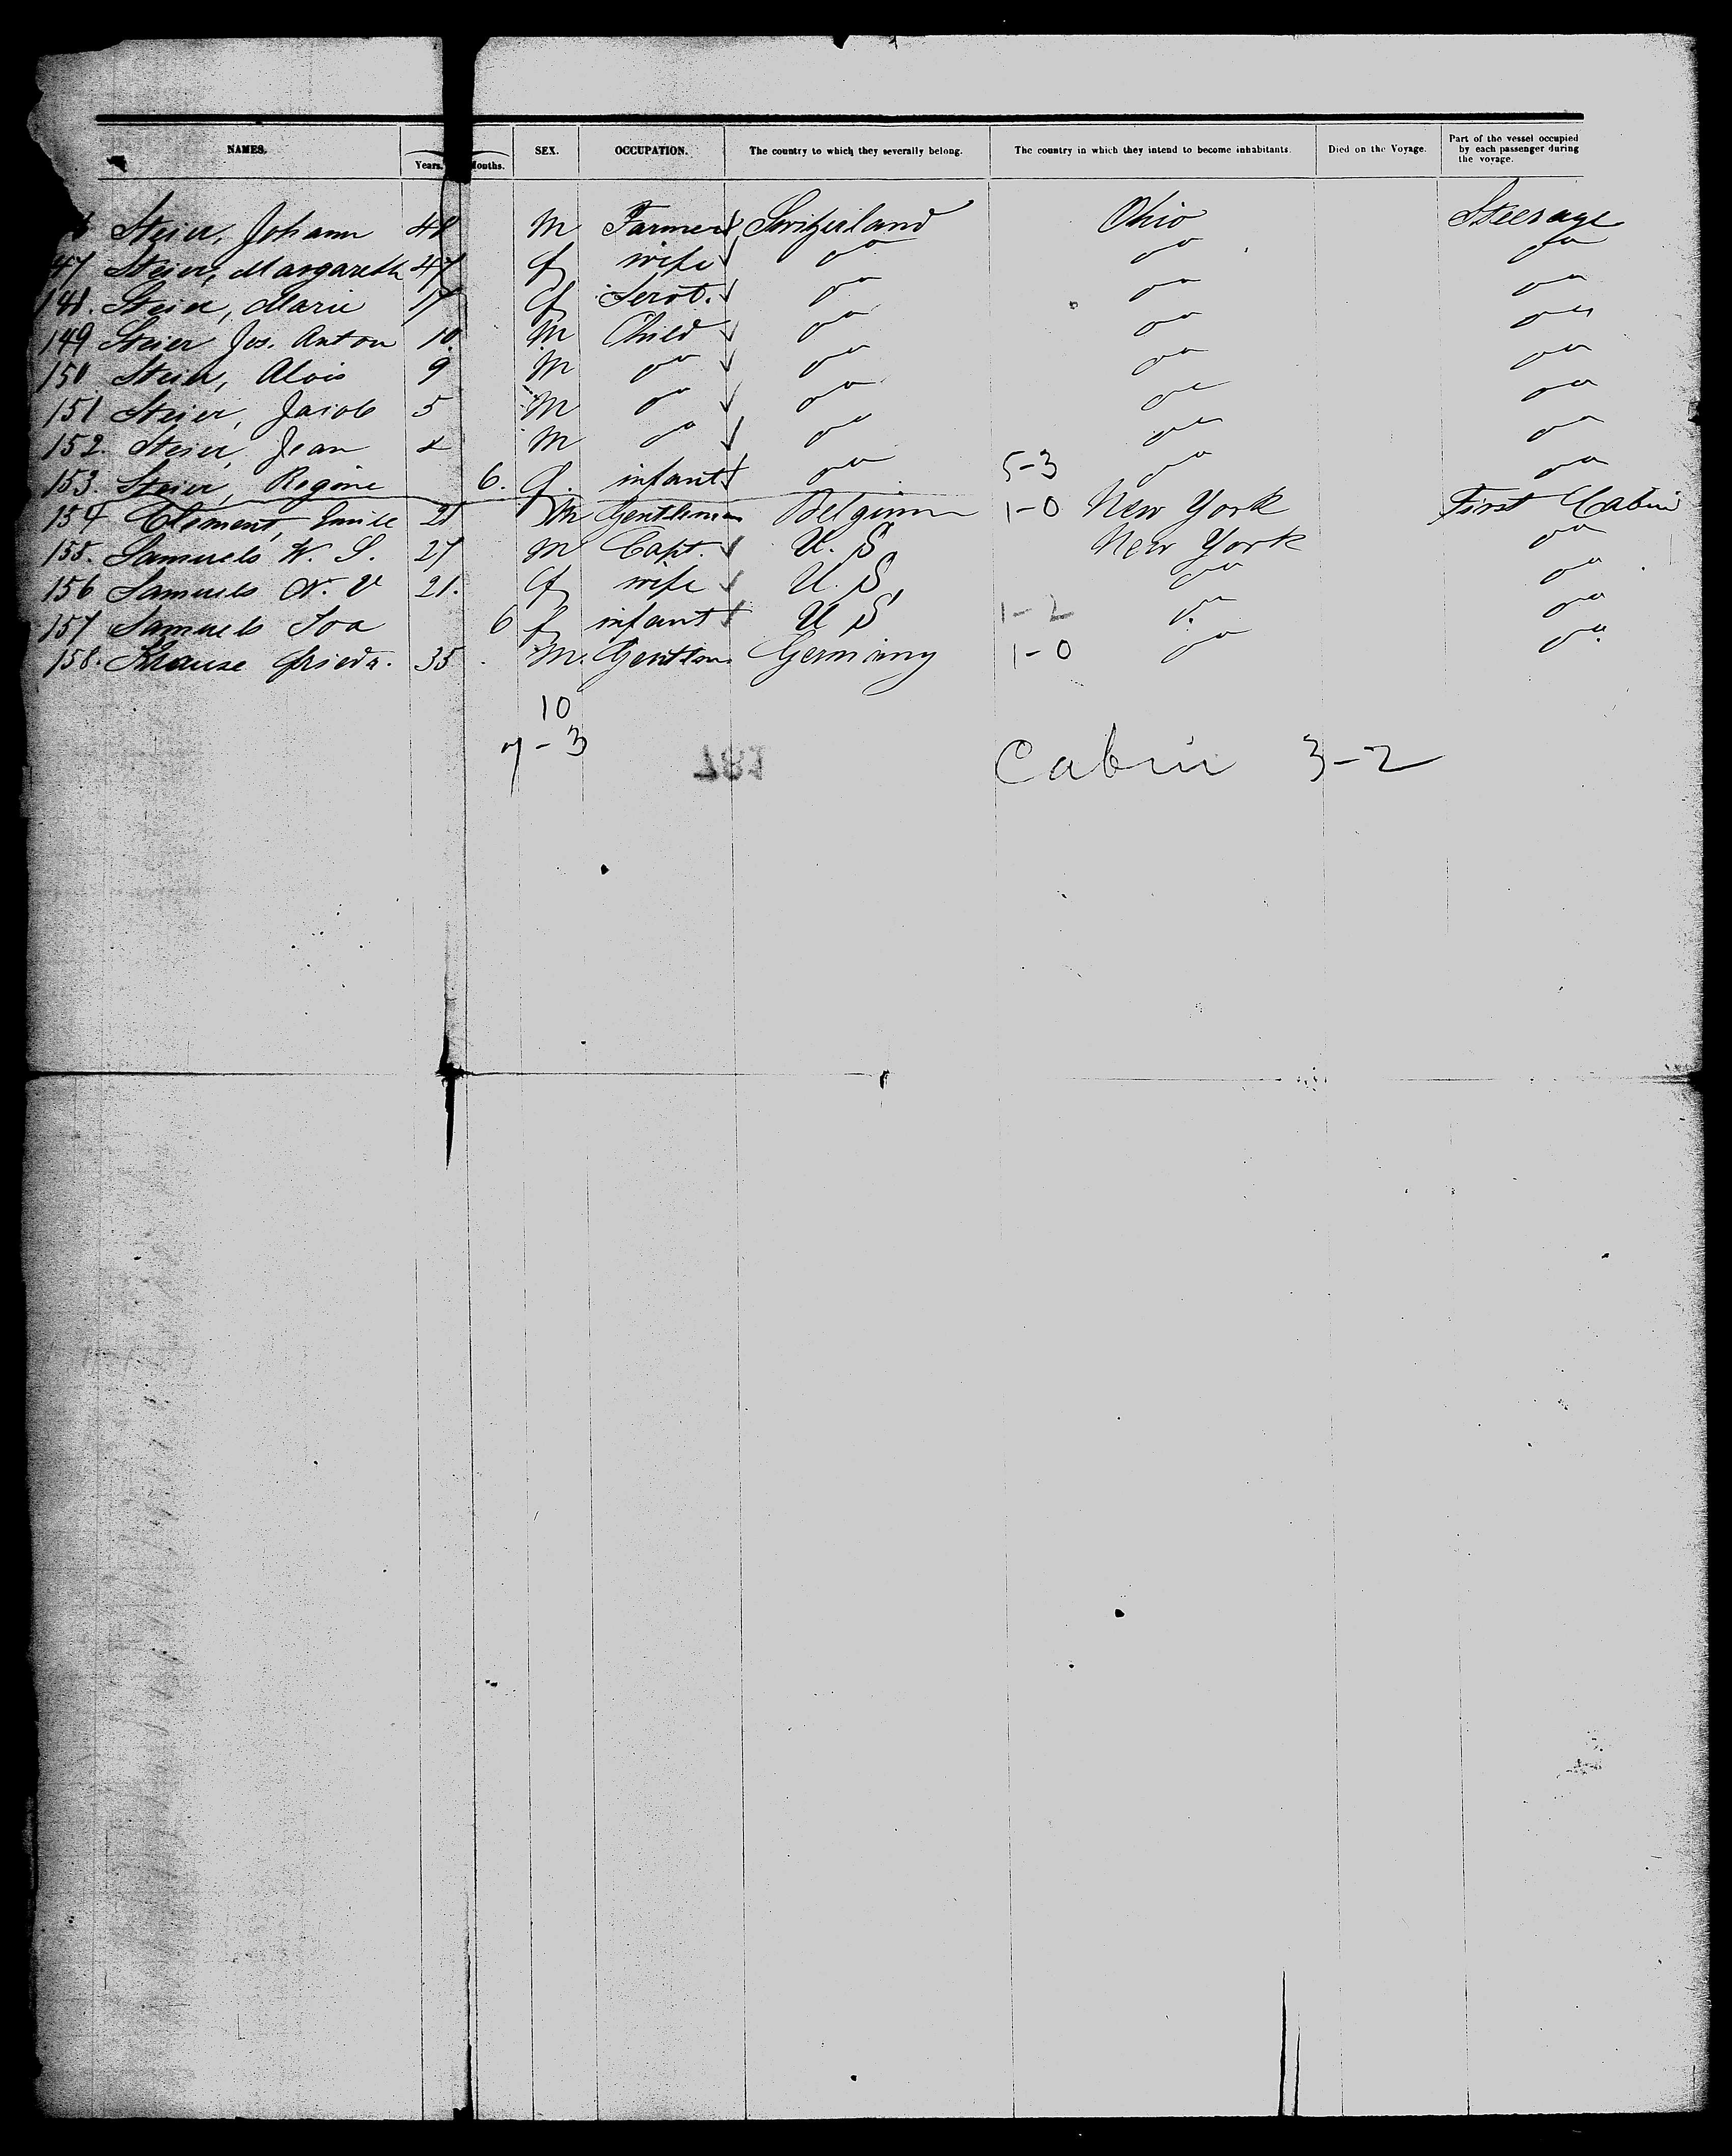 NAMES. Years. Months. SEX. OCCUPATION. The country to which they severally belong. The country in which they intend to become inhabitants. Died on the Voyage. Part of the vessel occupied by each passenger during the voyage.
6 Steier, Johann 48 M Farmer Switzerland Ohio Steerage
47 Steier, Margareth 47 f wife do do do
148. Steier, Marie 17 f Servt. do do do
149 Steier Jos. Anton 10. M Child do do do
150 Steier, Alois 9 M do do do do
151 Steier, Jacob 5 M do do do do
152. Steier, Jean M do do do do
153. Steier, Regine 6. f. infant do 5-3 do do
154 Clement, Emile M Gentleman Belgium 1-0 New York First Cabin
155. Samuels W. S. 27 M Capt. U. S. New York do
156 Samuels N. V 21. f wife U. S. do do
157 Samuels 6 f infant U S 1-2 do do
158. Krause Friedr. 35 M. Gentlm. Germany 1-0 do do
10
7-3
187
Cabin 3-2